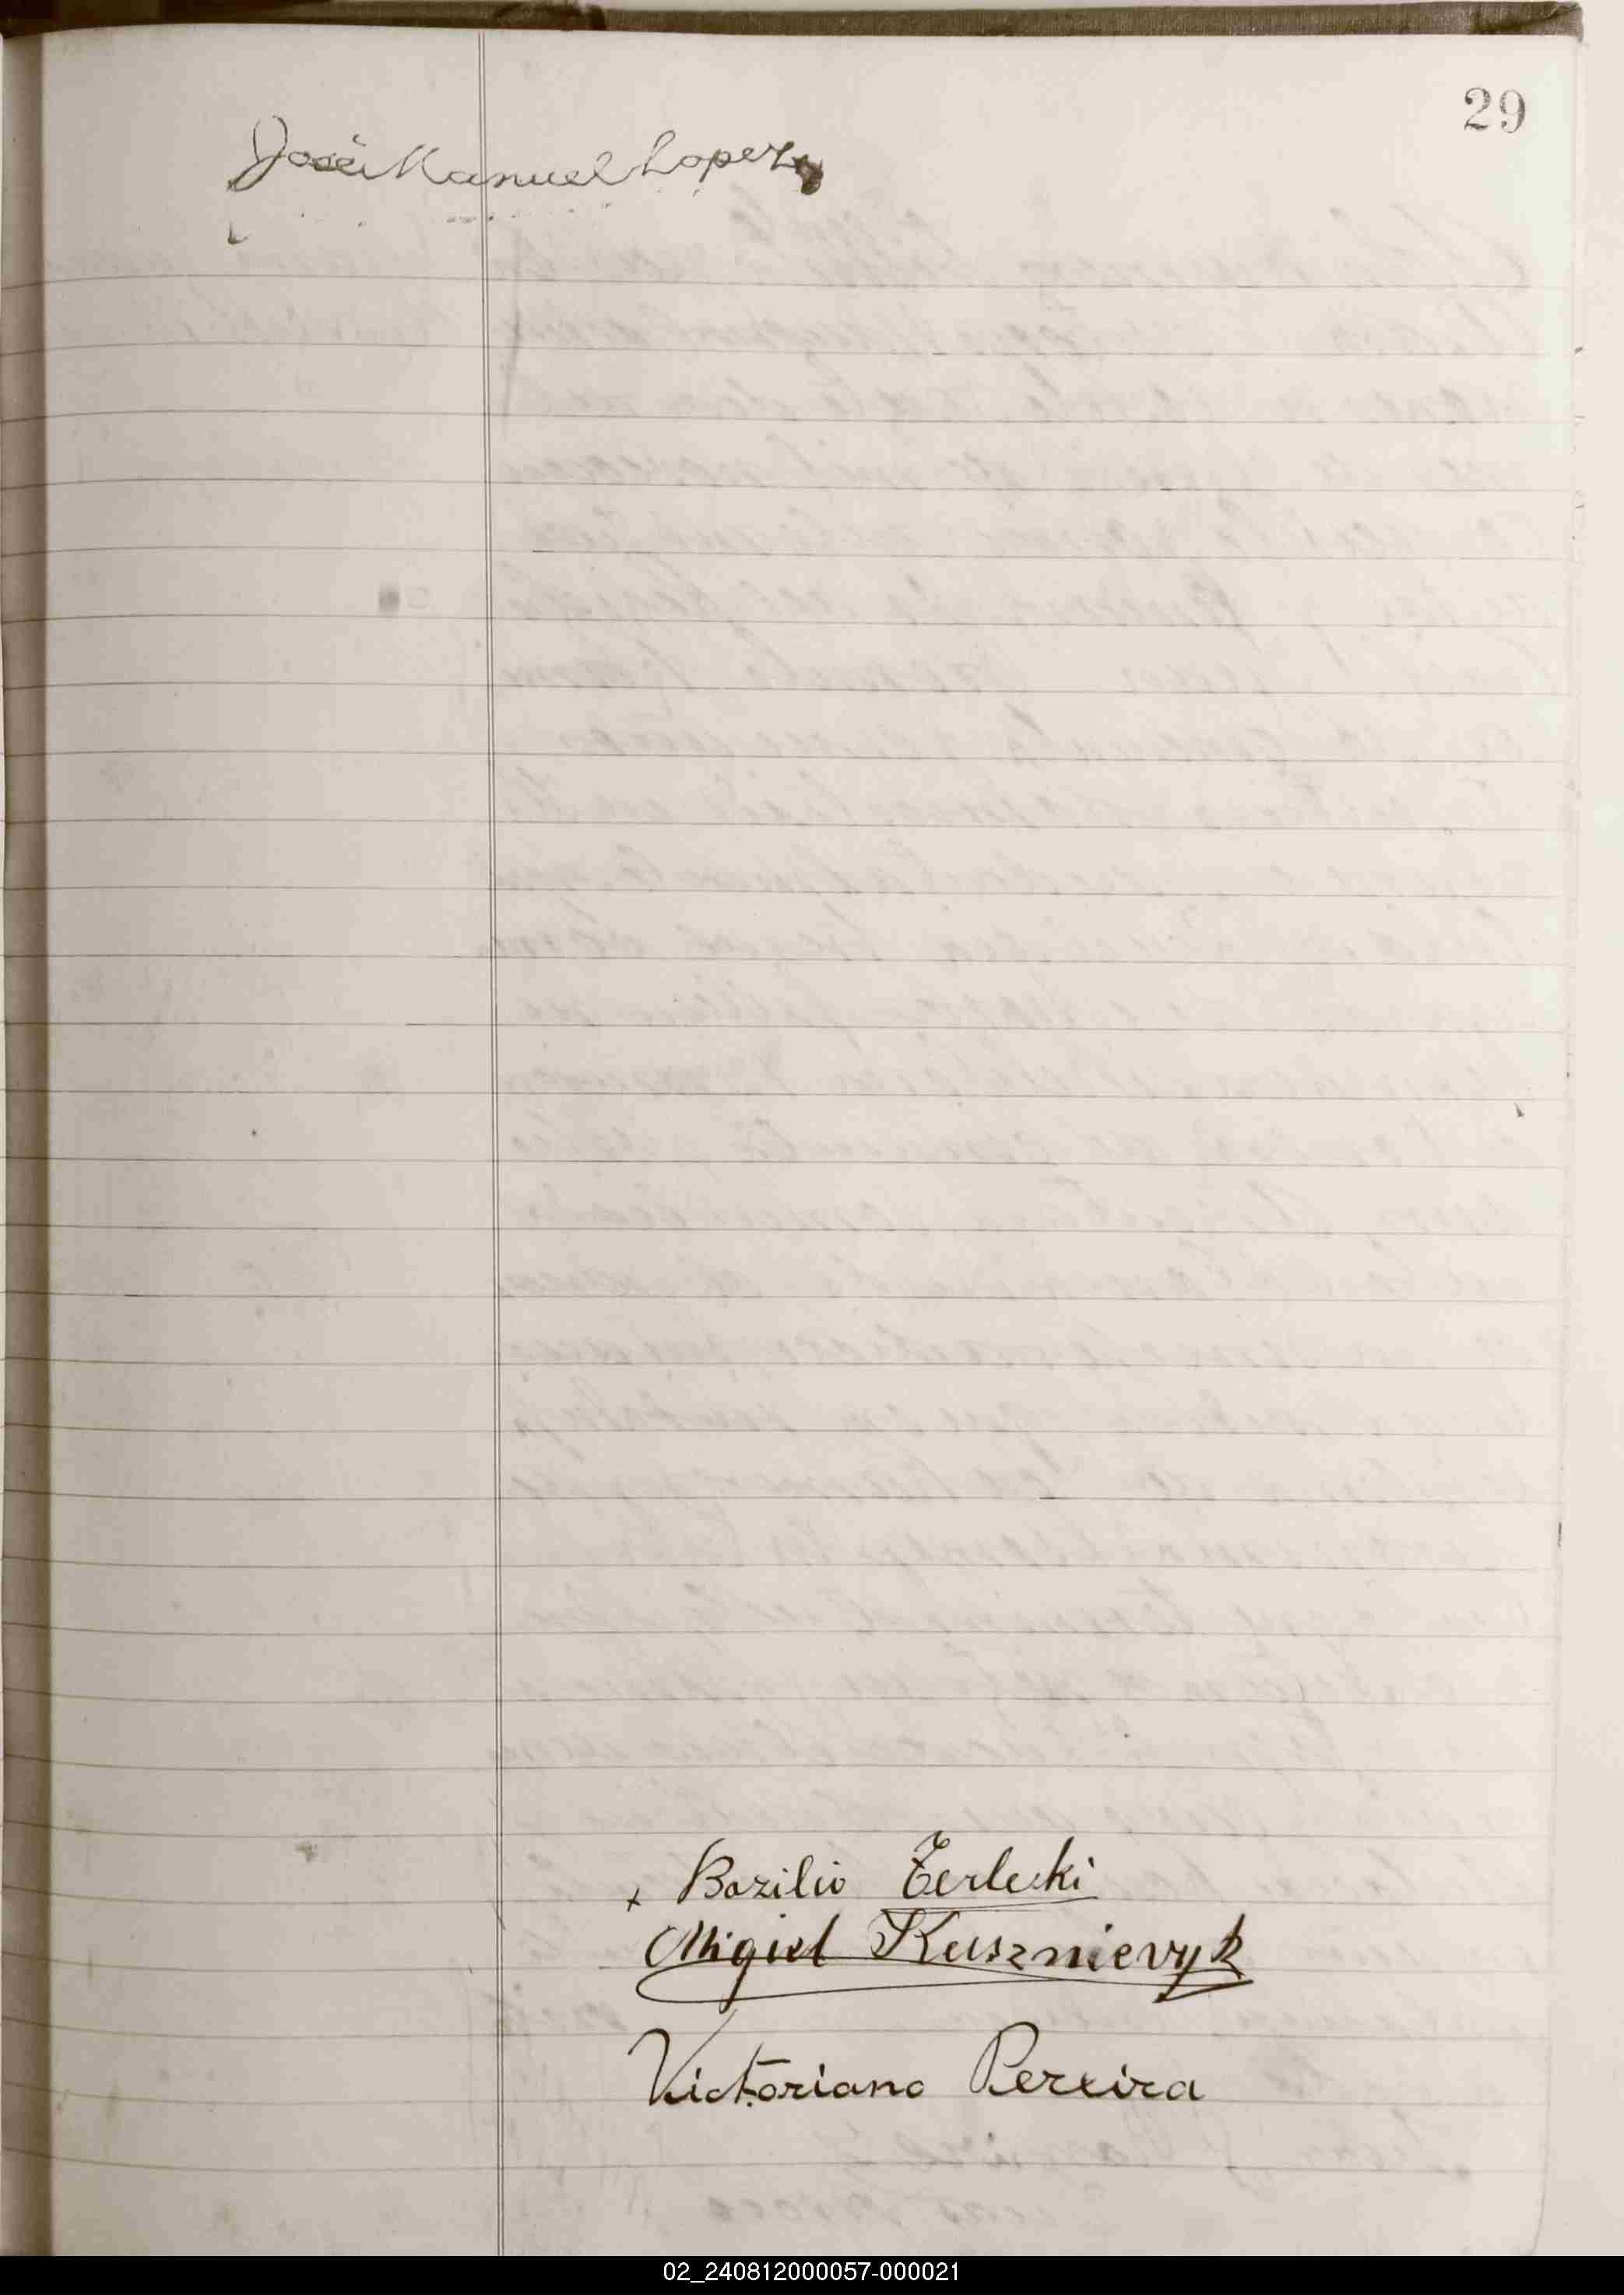 29
José Manuel Lopez
x Bazilio Terlecki
Miguel Kusznievyk
Victoriano Pereira
02_240812000057-000021